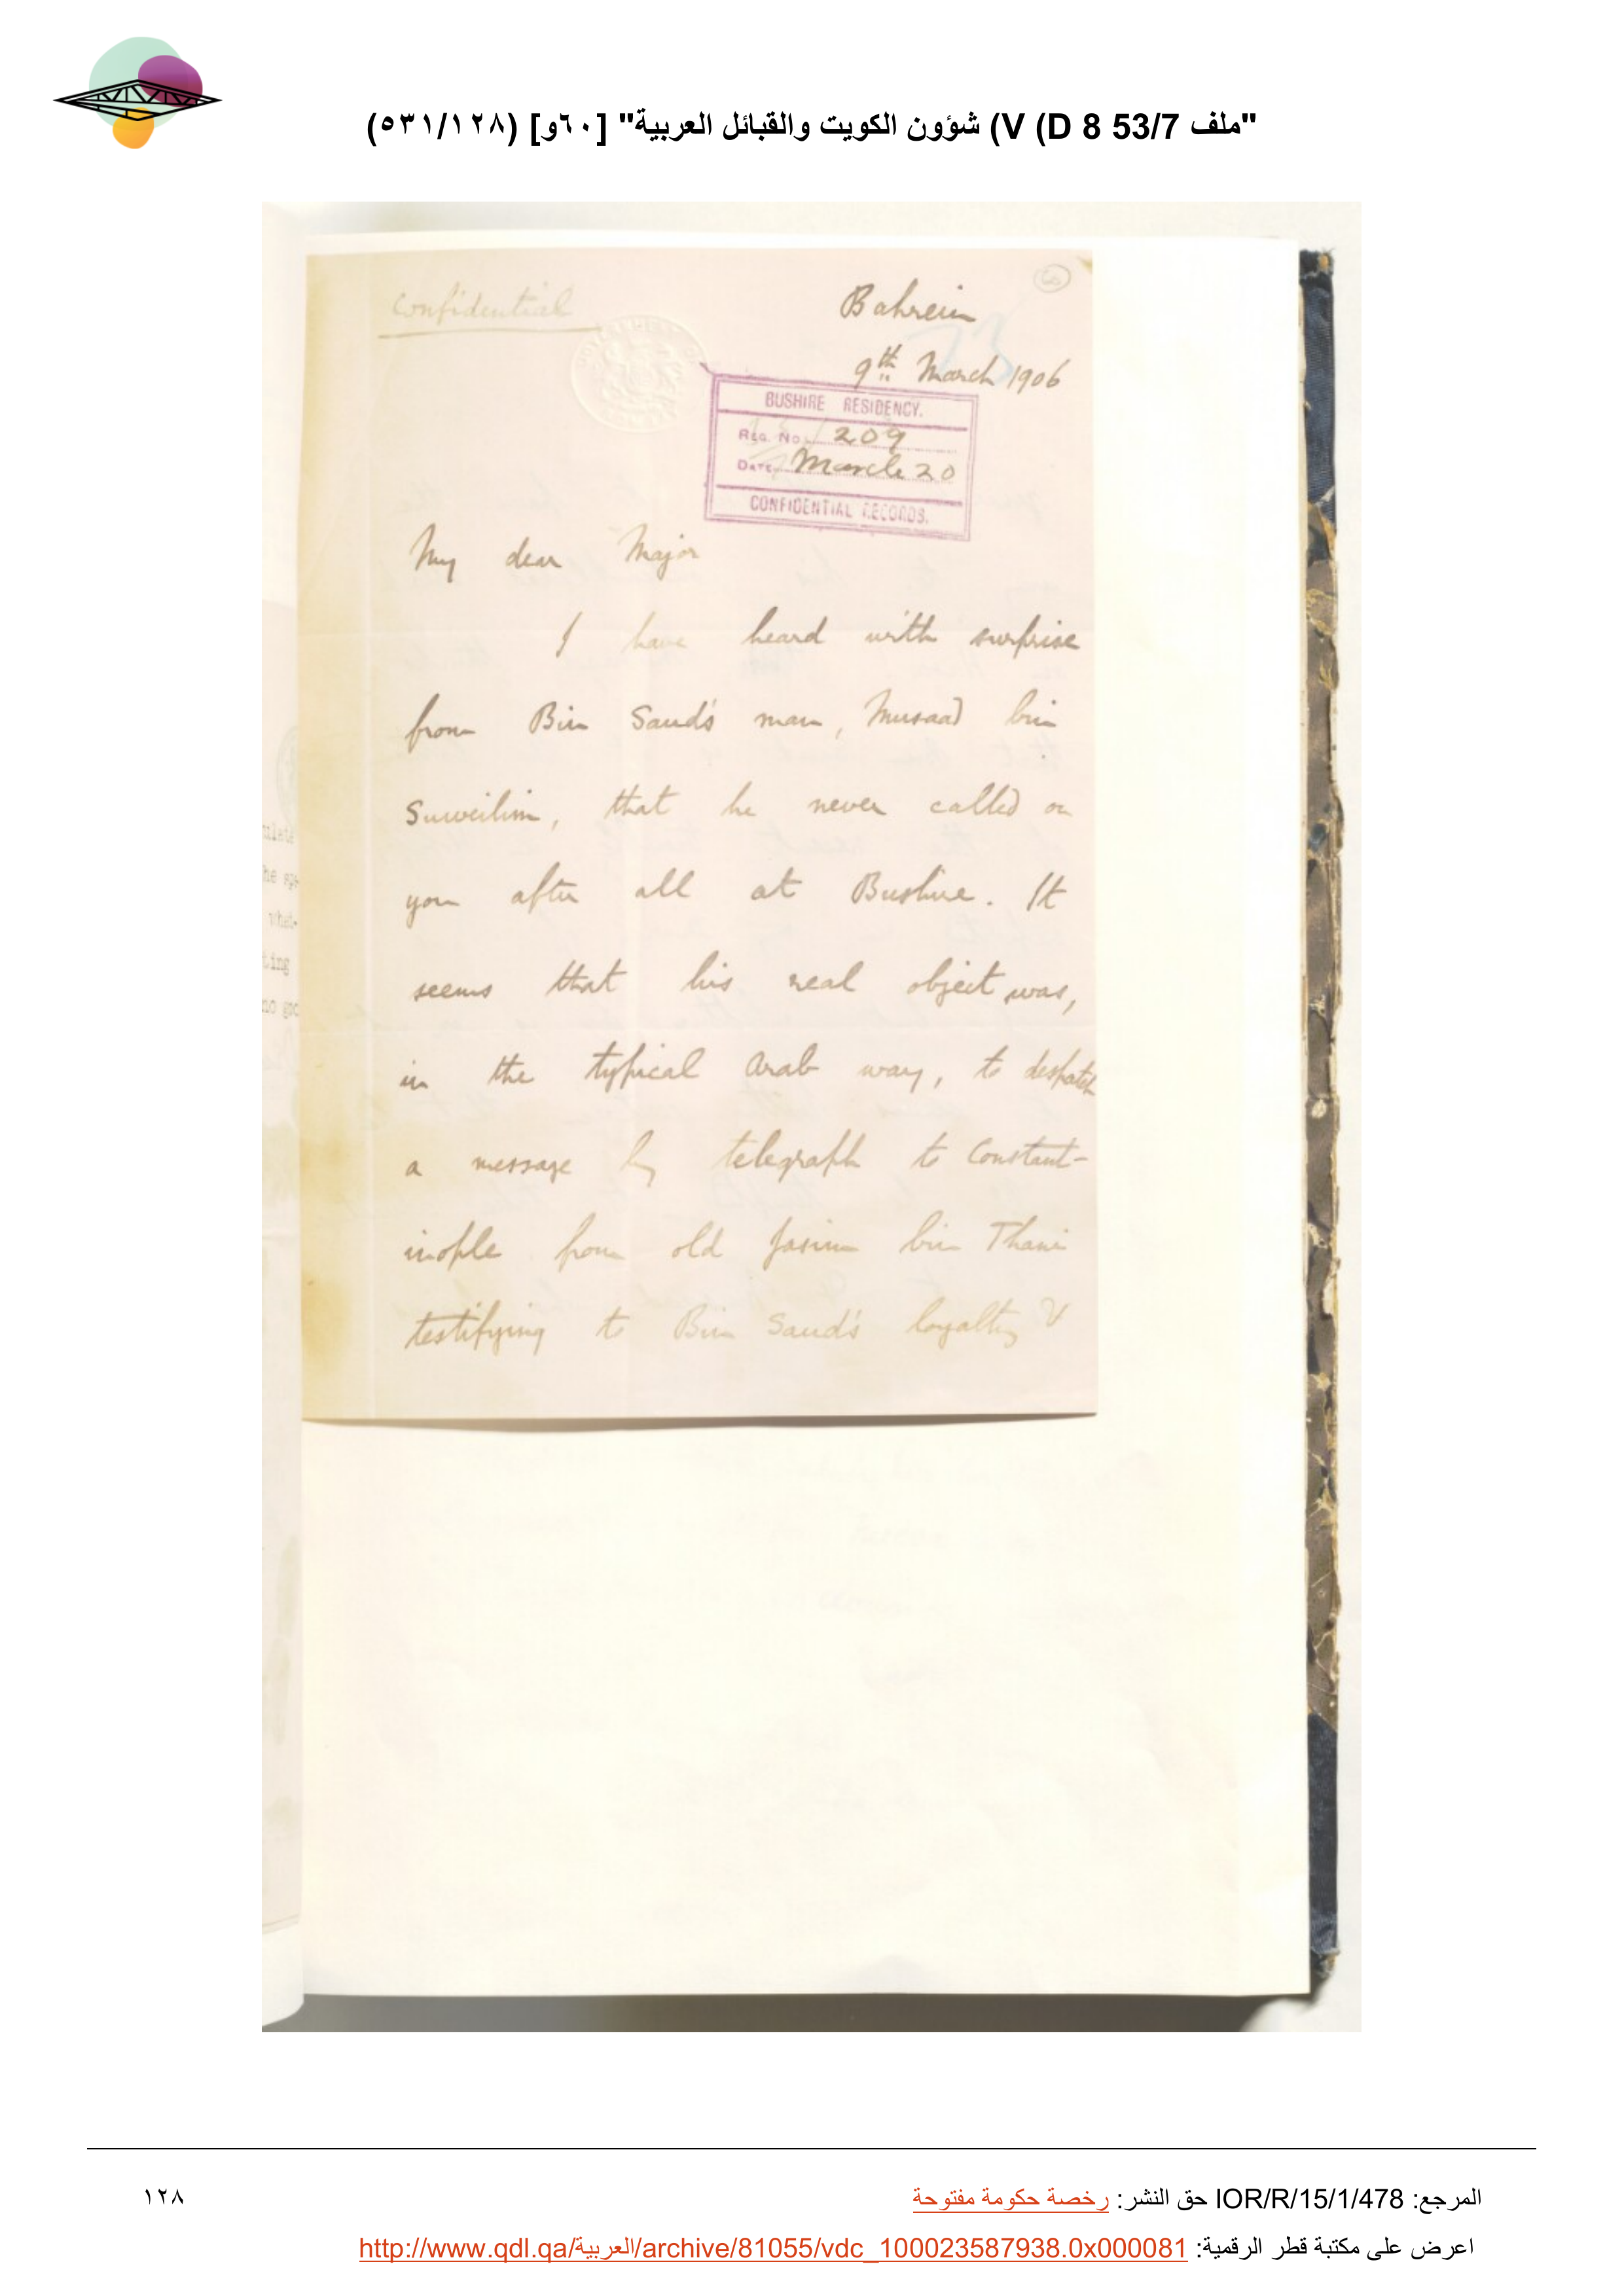 "ملف 53/7 D 8) V) شؤون الكويت والقبائل العربية" [٦٠و] (٥٣١/١٢٨)
60
Confidential
Bahrein
73
9th March 1906
BUSHIRE RESIDENCY.
REG. No. 209
DATE March 20
CONFIDENTIAL RECORDS.
My dear Major
I have heard with surprise
from Bin Saud's man, Musaad bin
Suweilim, that he never called on
you after all at Bushire. It
seems that his real object was,
in the typical Arab way, to despatch
a message by telegraph to Constant-
inople from old Jasim bin Thani
testifying to Bin Saud's loyalty &
المرجع: IOR/R/15/1/478 حق النشر: رخصة حكومة مفتوحة
١٢٨
اعرض على مكتبة قطر الرقمية: http://www.qdl.qa/العربية/archive/81055/vdc_100023587938.0x000081